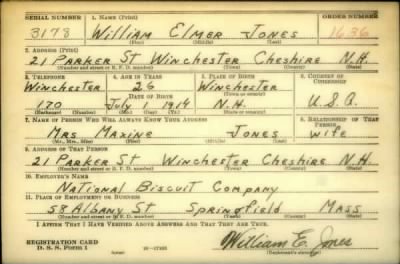 SERIAL NUMBER 1. NAME (Print) ORDER NUMBER
3178 William Elmer Jones 1636
(First) (Middle) (Last)
2. ADDRESS (Print)
21 Parker St Winchester Cheshire N.H.
(Number and street or R. F. D. number) (Town) (County) (State)
3. TELEPHONE 4. AGE IN YEARS 5. PLACE OF BIRTH 6. COUNTRY OF CITIZENSHIP
Winchester 26 Winchester
DATE OF BIRTH (Town or county)
170 July 1 1914 N.H. U.S.A.
(Exchange) (Number) (Mo.) (Day) (Yr.) (State or country)
7. NAME OF PERSON WHO WILL ALWAYS KNOW YOUR ADDRESS 8. RELATIONSHIP OF THAT PERSON
Mrs Maxine Jones wife
(Mr., Mrs., Miss) (First) (Middle) (Last)
9. ADDRESS OF THAT PERSON
21 Parker St Winchester Cheshire N.H.
(Number and street or R. F. D. number) (Town) (County) (State)
10. EMPLOYER'S NAME
National Biscuit Company
11. PLACE OF EMPLOYMENT OR BUSINESS
58 Albany St Springfield Mass
(Number and street or R. F. D. number) (Town) (County) (State)
I AFFIRM THAT I HAVE VERIFIED ABOVE ANSWERS AND THAT THEY ARE TRUE.
REGISTRATION CARD
D. S. S. Form 1
(over)
William E. Jones
(Registrant's signature)